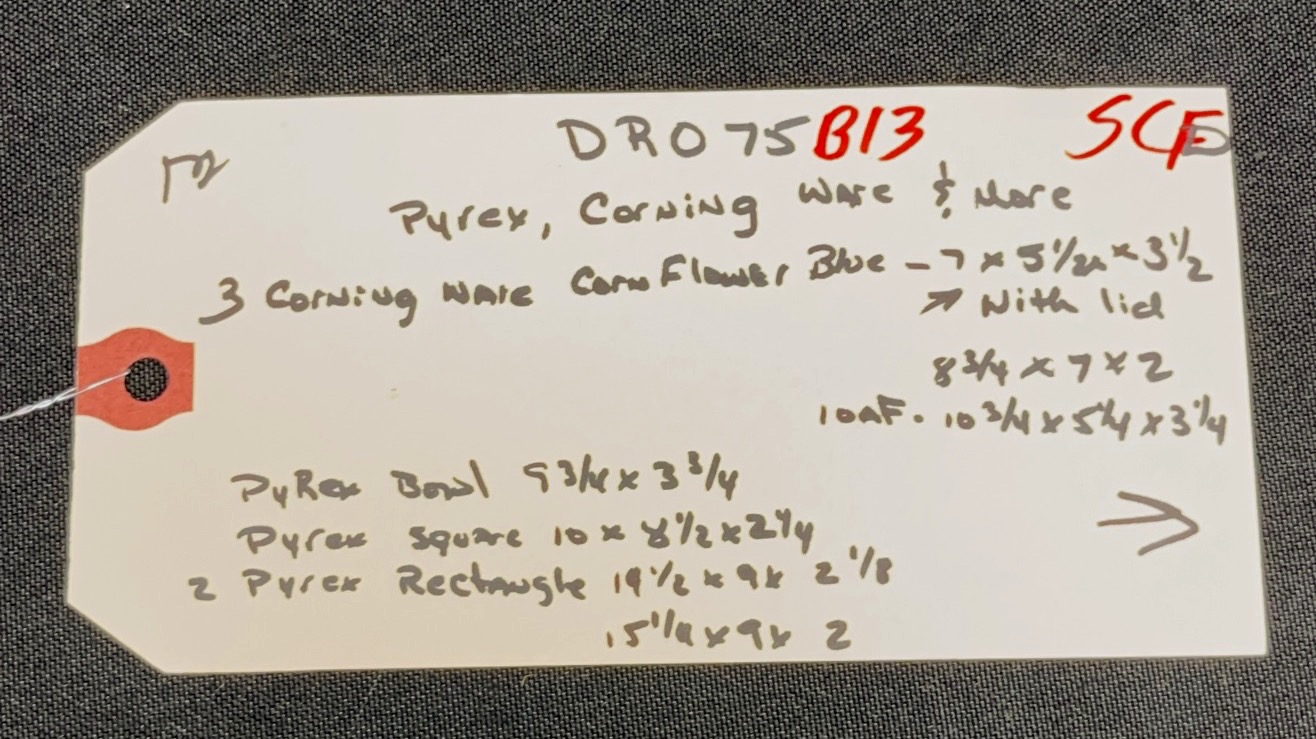 DR075 B13 SCF
Pyrex, Corning Ware & More
3 Corning Ware Corn Flower Blue - 7 x 5 1/2 x 3 1/2
→ With lid
8 3/4 x 7 x 2
10 3/4 x 5 1/4 x 3 1/4
PyRex Bowl 9 3/4 x 3 3/4
Pyrex Square 10 x 8 1/2 x 2 1/4
2 Pyrex Rectangle x 9 x 2 1/8
15 1/4 x 9 x 2
→